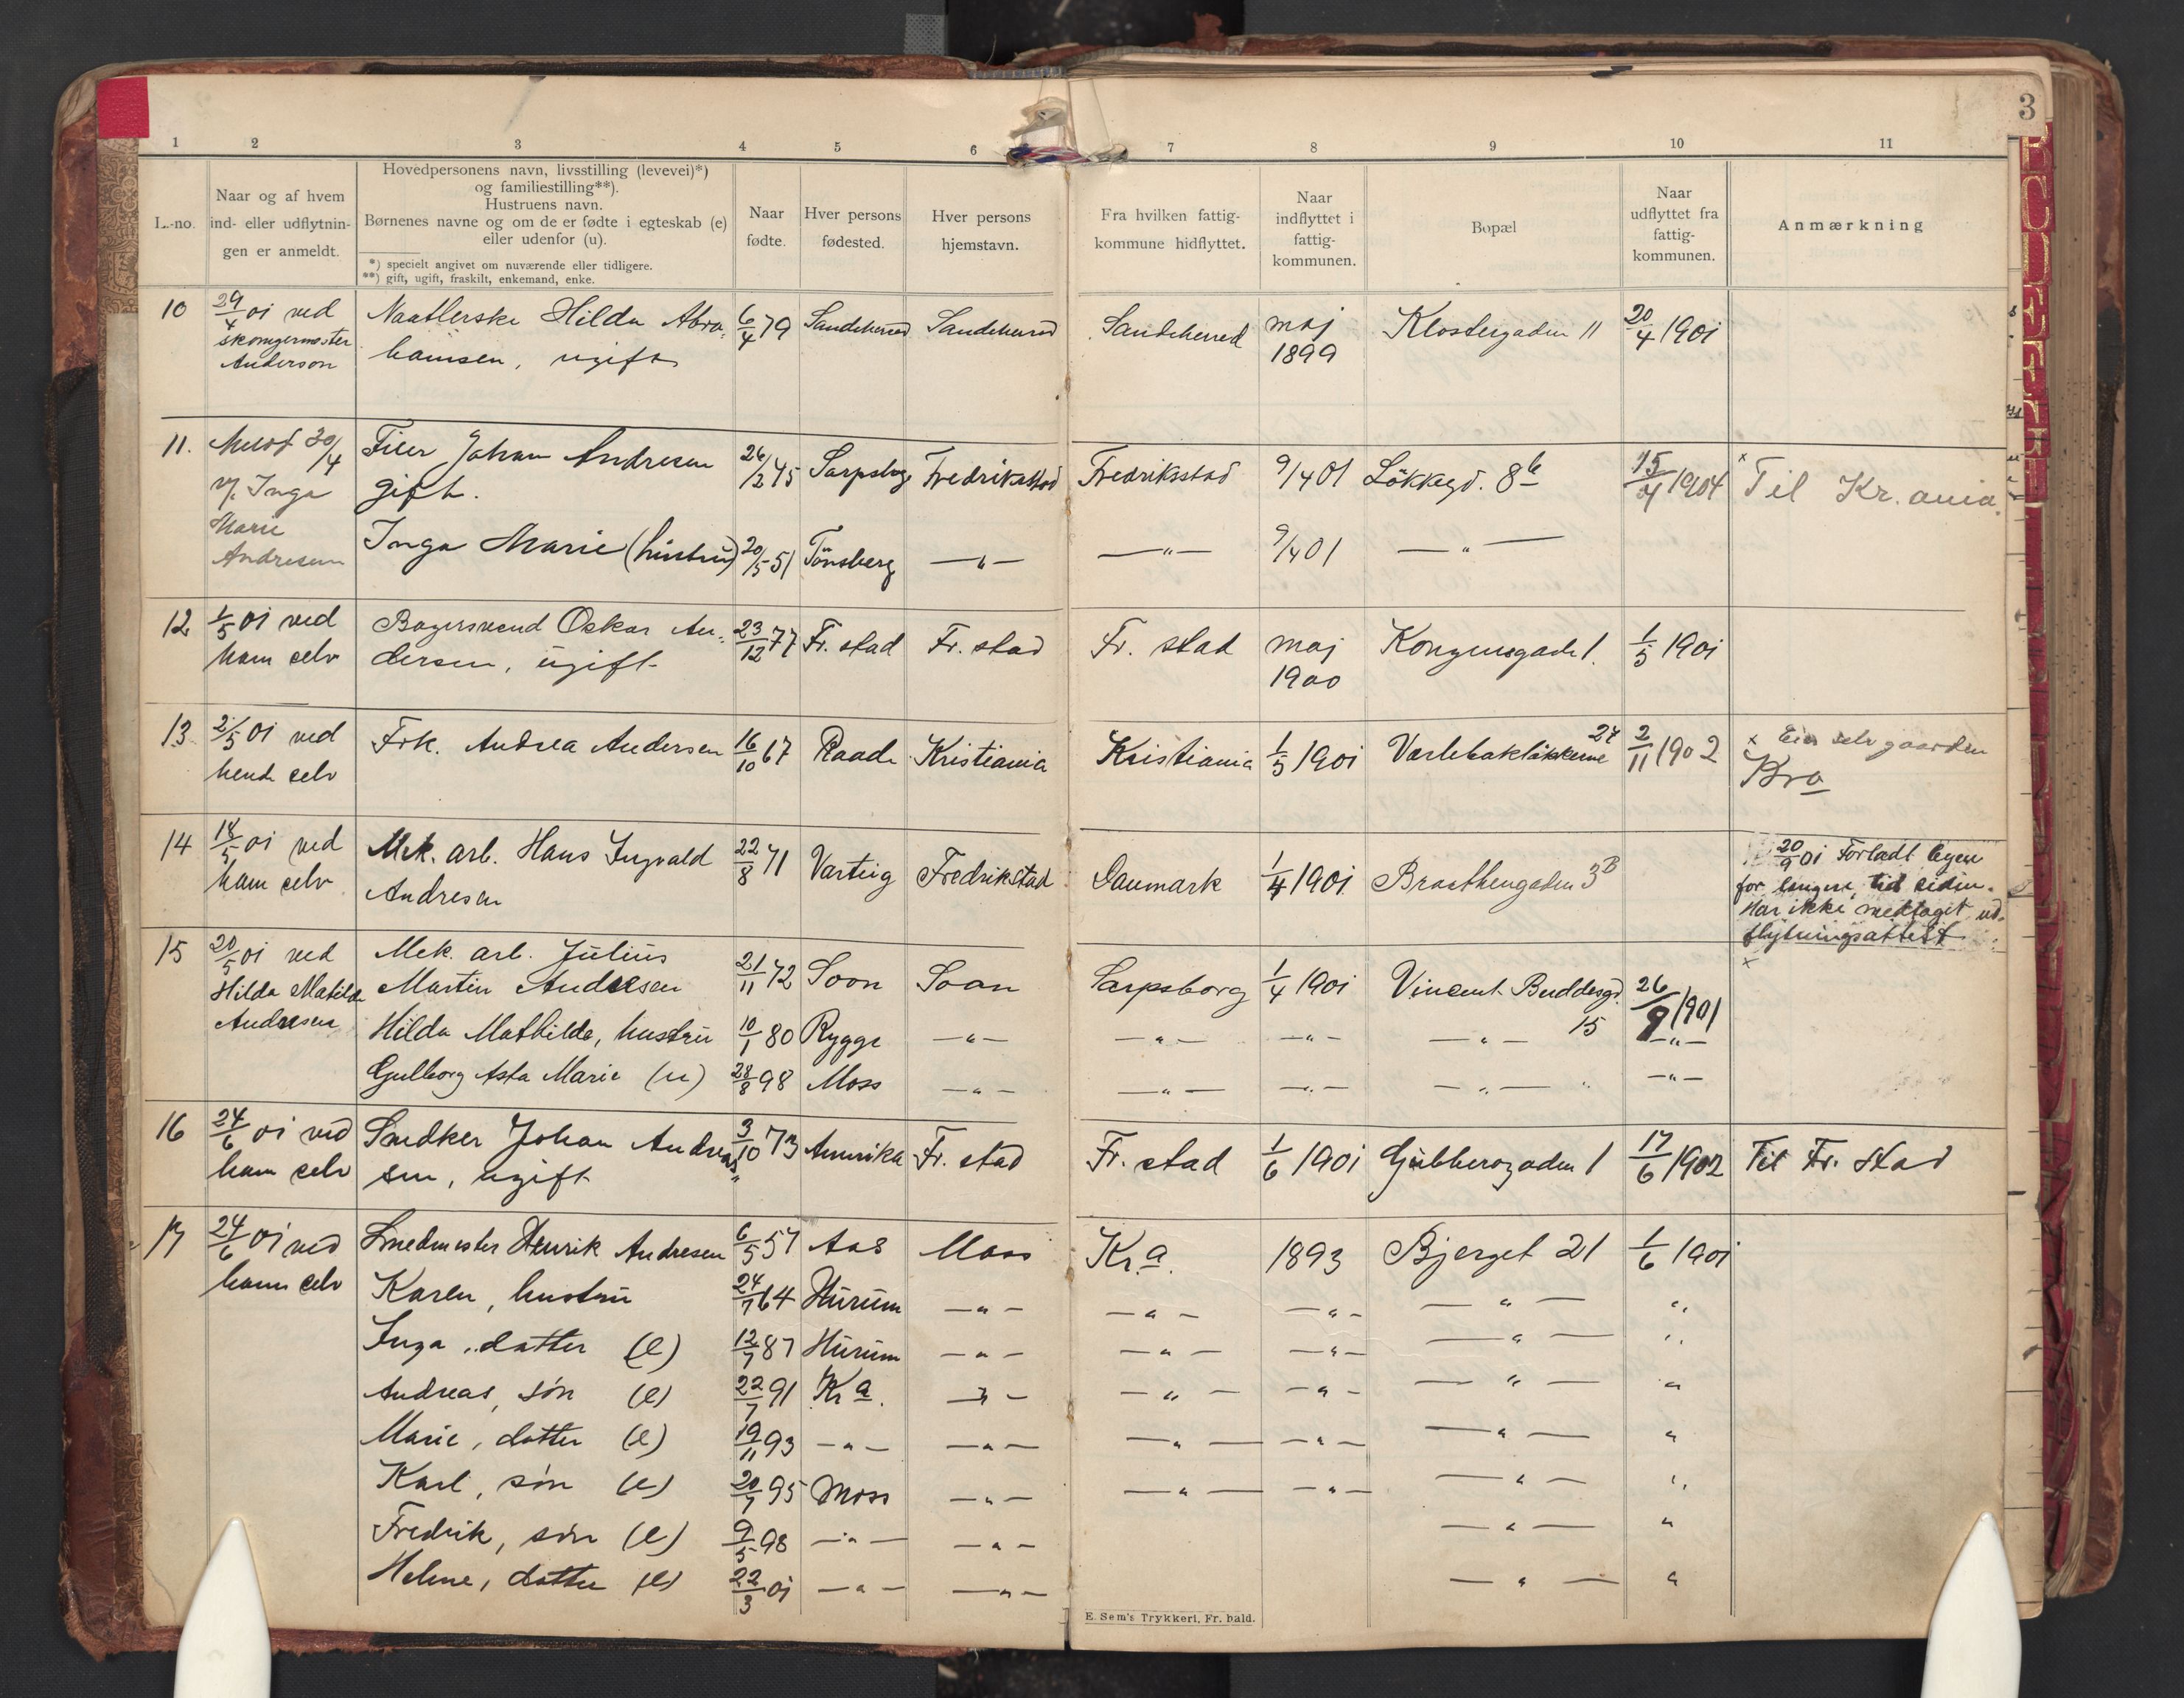 3
1 2 3 4 5 6 7 8 9 10 11
L.-no.
Naar og af hvem
ind- eller udflytnin-
gen er anmeldt.
Hovedpersonens navn, livsstilling (levevei)*)
og familiestilling**).
Hustruens navn.
Børnenes navne og om de er fødte i egteskab (e)
eller udenfor (u).
*) specielt angivet om nuværende eller tidligere.
**) gift, ugift, fraskilt, enkemand, enke.
Naar
fødte.
Hver persons
fødested.
Hver persons
hjemstavn.
Fra hvilken fattig-
kommune hidflyttet.
Naar
indflyttet i
fattig-
kommunen.
Bopæl
Naar
udflyttet fra
fattig-
kommunen.
Anmærkning
10 29/4 01 ved Naatlerske Hilda Abra- 6/4 79 Sandeherred Sandeherred Sandeherred maj Klostergaden 11 20/4 1901
Anderson hamsen, ugift 1899
11. 30/4 Filer Johan Andresen 26/2 45 Sarpsbg Fredriksstad Fredriksstad 9/4 01 Løkkegd. 8b 15/4 1904 x Til Kr.ania.
v/ Inga gift.
Marie Inga Marie (hustru) 20/5 51 Tønsberg —"— —"— 9/4 01 —"—
Andresen
12 1/5 01 ved Bagersvend Oskar An- 23/12 77 Fr. stad Fr. stad Fr. stad maj Kongensgade 1. 1/5 1901
ham selv dersen, ugift 1900
13 2/5 01 ved Frk. Andrea Andersen 16/10 67 Raade Kristiania Kristiania 1/5 1901 Varlebakløkkerne 27 2/11 1902 x Eier selv gaarden
hende selv Kra
14 18/5 01 ved Mek. arb. Hans Ingvald 22/8 71 Varteig Fredrikstad Danmark 1/4 1901 Braathengaden 3B 20/9 01 Forladt byen
ham selv Andresen for længere tid siden.
Har ikke medtaget ud-
flytningsattest
x
15 20/5 01 ved Mek. arb. Julius
Hilda Matilde Martin Andresen 21/11 72 Soon Soon Sarpsborg 1/4 1901 Vincent Buddesgd. 15 26/9 1901
Andresen Hilda Mathilde, hustru 10/1 80 Rygge —"— —"— —"— —"— —"—
Gulborg Asta Marie (u) 28/8 98 Moss —"— —"— —"— —"— —"—
16 24/6 01 ved Snedker Johan Andrea- 3/10 73 Amerika Fr. stad Fr. stad 1/6 1901 Gubberogaden 1 17/6 1902 Til Fr. Stad
ham selv sen, ugift
17 24/6 01 ved Smedmester Henrik Andresen 6/5 57 Aas Moss Kr.a. 1893 Bjerget 21 1/6 1901
ham selv Karen, hustru 24/7 64 Hurum —"— —"— —"— —"— "
Inga, datter (e) 12/7 87 Hurum —"— —"— —"— —"— "
Andreas, søn (e) 22/7 91 Kra. —"— —"— —"— —"— "
Marie, datter (e) 19/11 93 —"— —"— —"— —"— —"— "
Karl, søn (e) 20/7 95 Moss —"— —"— —"— —"— "
Fredrik, søn (e) 9/5 98 —"— —"— —"— "
Helene, datter (e) 22/3 01 —"— —"— —"— "
E. Sem's Trykkeri, Fr. hald.